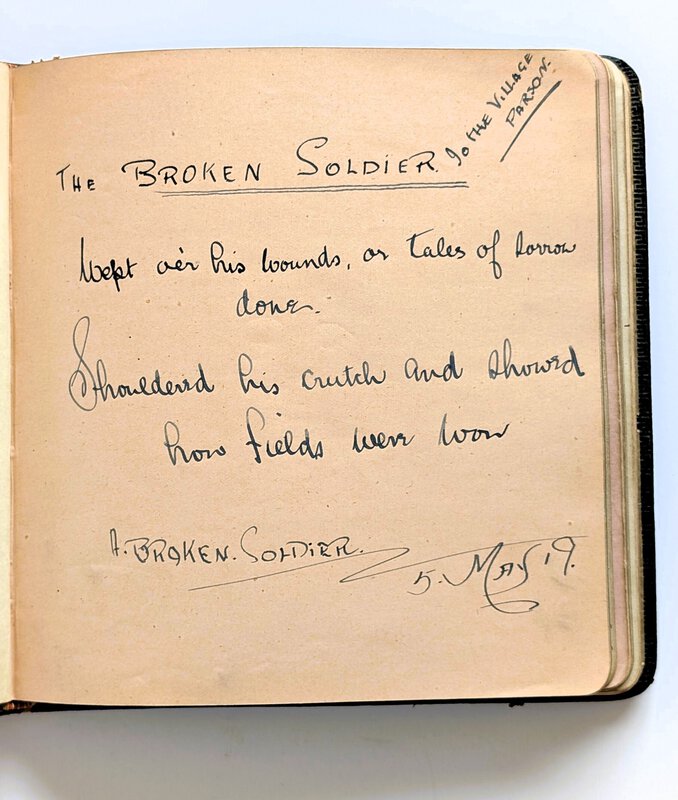 To the Village
Parson.
The Broken Soldier.
Wept o'er his wounds, or tales of sorrow
done.
Shouldered his crutch and showed
how fields were won
A. Broken. Soldier.
5. May 19.